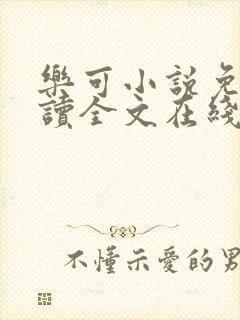 樂可小説免
讀全文在綫
不懂示愛的男